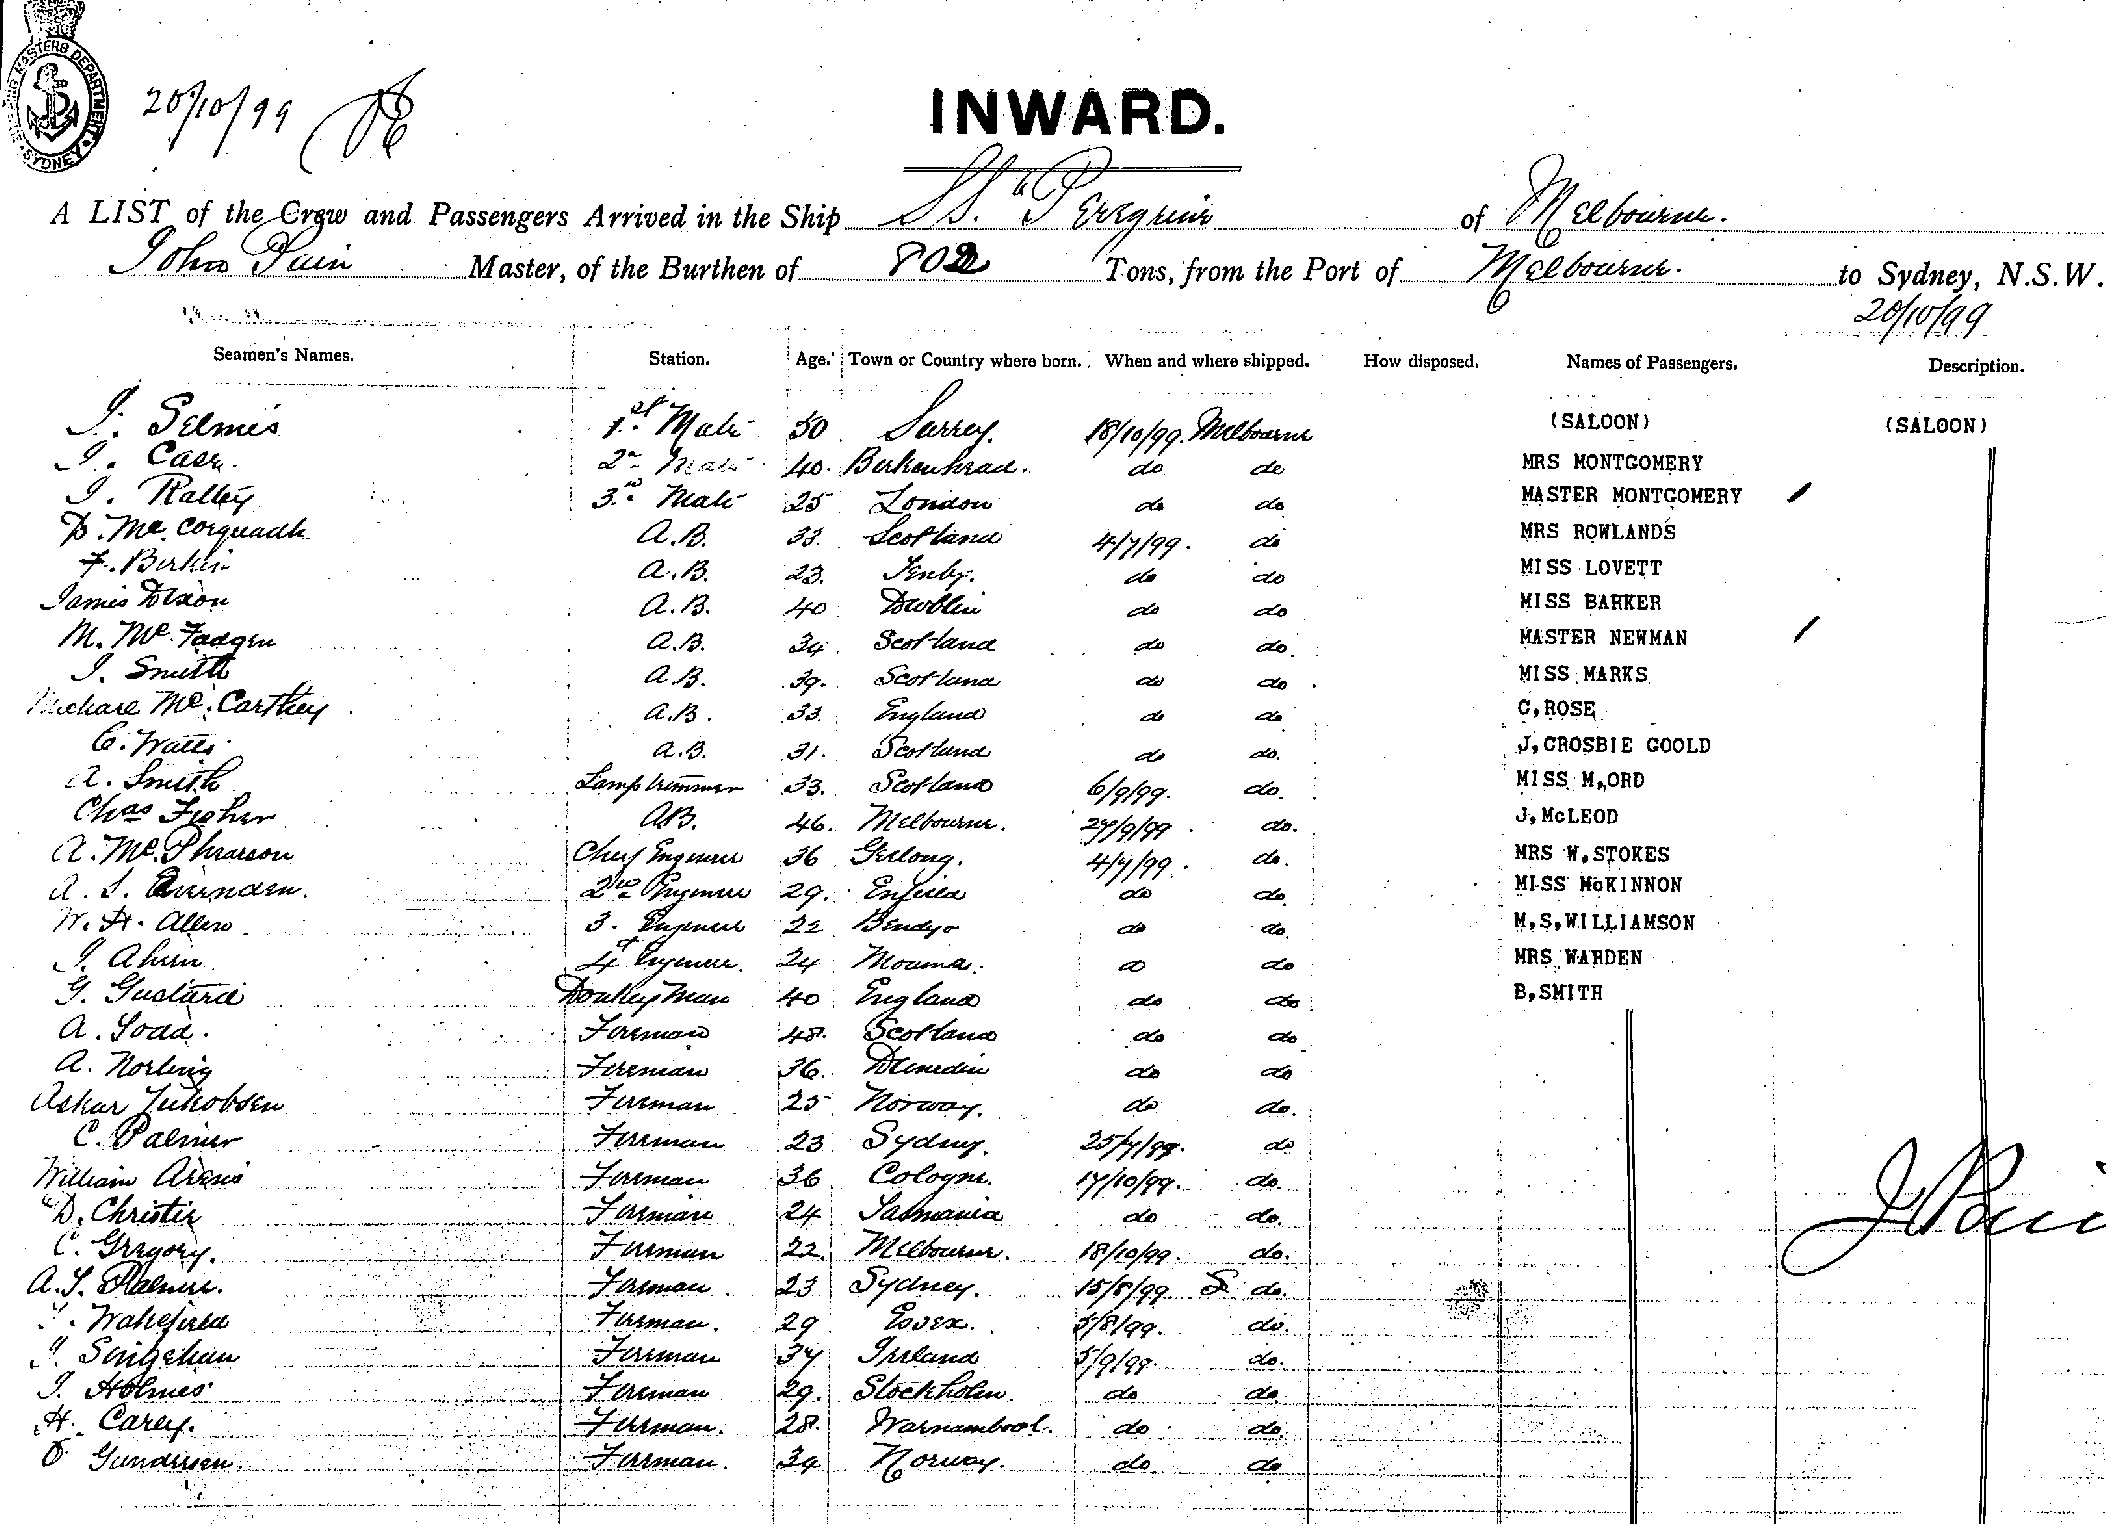 SHIPPING MASTERS DEPARTMENT SYDNEY
20/10/99
INWARD.
A LIST of the Crew and Passengers Arrived in the Ship SS. "Peregrine of Melbourne.
John Pain Master, of the Burthen of 802 Tons, from the Port of Melbourne. to Sydney, N.S.W.
20/10/99
Seamen's Names. Station. Age. Town or Country where born. When and where shipped. How disposed. Names of Passengers. Description.
J. Selmes 1st Mate 50 Surrey. 18/10/99. Melbourne (SALOON) (SALOON)
J. Case. 2nd Mate 40. Birkenhead. do do MRS MONTGOMERY
J. Ralley 3rd Mate 25 London do do MASTER MONTGOMERY
D. Mc. Corquadle A.B. 33. Scotland 4/7/99. do MRS ROWLANDS
F. Birkin A.B. 23. Tenby. do do MISS LOVETT
James Dixon A.B. 40 Dublin do do MISS BARKER
M. Mc Fadgen A.B. 34 Scotland do do. MASTER NEWMAN
J. Smith A.B. 39. Scotland do do MISS MARKS
Michael Mc. Carthey A.B. 33 England do do C,ROSE
C. Watts A.B. 31. Scotland do do. J,CROSBIE GOOLD
A. Smith Lamp trimmer 33. Scotland 6/9/99. do. MISS M,ORD
Chas Fisher A.B. 46. Melbourne. 27/9/99 do. J,McLEOD
A. Mc. Phearson Chief Engineer 36 Geelong. 4/7/99. do. MRS W,STOKES
A. S. Evernden. 2nd Engineer 29. Enfield do do. MISS McKINNON
W. H. Allen 3. Engineer 22 Bendigo do do. M,S,WILLIAMSON
J. Ahern 4 Engineer. 24 Moama. do do MRS WARDEN
G. Gustard Donkey Man 40 England do do B,SMITH
A. Todd. Fireman 48. Scotland do do
A. Norling Fireman 36. Dunedin do do
Askar Jukobsen Fireman 25 Norway. do do.
C. Palmer Fireman 23 Sydney. 25/7/99. do
William Fireman 36 Cologne. 17/10/99. do.
D. Christie Fireman 24 Tasmania do do.
C. Gregory. Fireman 22. Melbourne. 18/10/99. do.
A. S. Palmer. Fireman 23 Sydney. 15/8/99 S do.
Wakefield Fireman. 29 Essex. 5/8/99. do.
J. Fireman 37 Ireland 5/9/99. do.
J. Holmes Fireman 29. Stockholm. do do.
H. Carey. Fireman. 28. Warnambool. do do.
O Gundersen. Fireman. 39 Norway. do do
J Pain